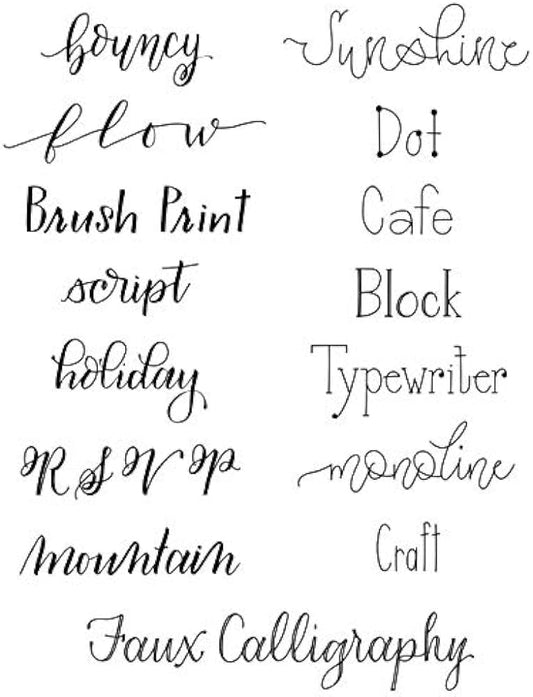 bouncy Sunshine
flow Dot
Brush Print Cafe
script Block
holiday Typewriter
RSVP monoline
mountain Craft
Faux Calligraphy